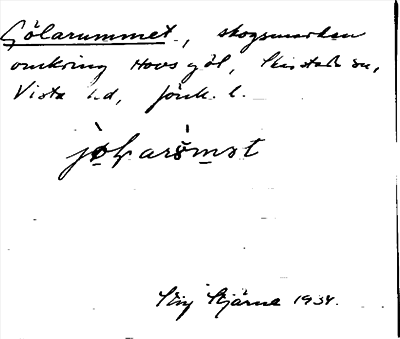 Gölarummet, skogsmarken
omkring Hovs göl, Skärstads sn,
Vista hd, Jönk. l.
Stig Stjärne 1934.